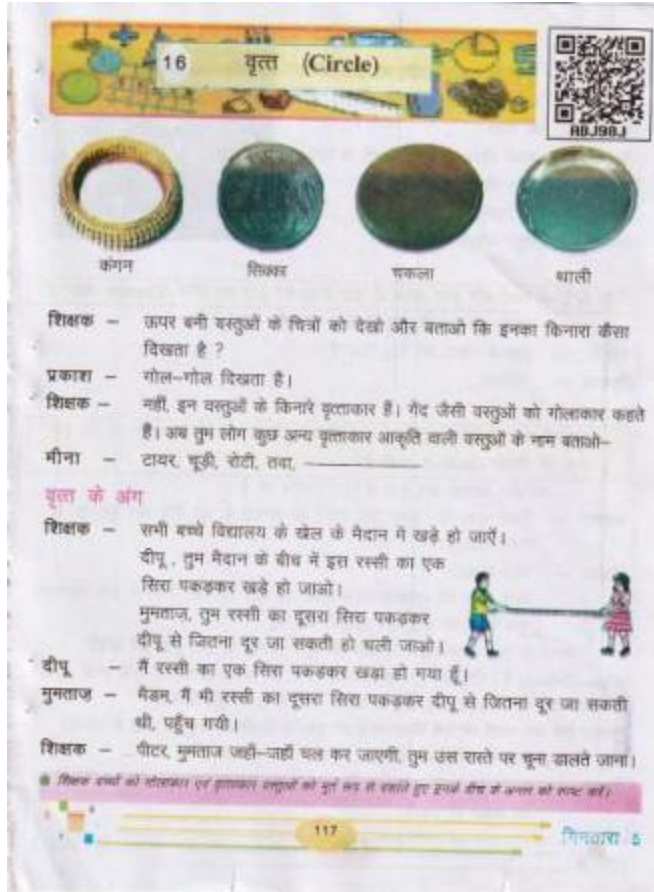 16 वृत्त (Circle)
ABJ98J
कंगन सिक्का चकला थाली
शिक्षक – ऊपर बनी वस्तुओं के चित्रों को देखो और बताओ कि इनका किनारा कैसा
दिखता है ?
प्रकाश – गोल–गोल दिखता है।
शिक्षक – नहीं, इन वस्तुओं के किनारे वृत्ताकार हैं। गेंद जैसी वस्तुओं को गोलाकार कहते
हैं। अब तुम लोग कुछ अन्य वृत्ताकार आकृति वाली वस्तुओं के नाम बताओ–
मीना – टायर, चूड़ी, रोटी, तवा,
वृत्त के अंग
शिक्षक – सभी बच्चे विद्यालय के खेल के मैदान में खड़े हो जाएँ।
दीपू , तुम मैदान के बीच में इस रस्सी का एक
सिरा पकड़कर खड़े हो जाओ।
मुमताज, तुम रस्सी का दूसरा सिरा पकड़कर
दीपू से जितना दूर जा सकती हो चली जाओ।
दीपू – मैं रस्सी का एक सिरा पकड़कर खड़ा हो गया हूँ।
मुमताज़ – मैडम, मैं भी रस्सी का दूसरा सिरा पकड़कर दीपू से जितना दूर जा सकती
थी, पहुँच गयी।
शिक्षक – पीटर, मुमताज जहाँ–जहाँ चल कर जाएगी, तुम उस रास्ते पर चूना डालते जाना।
शिक्षक बच्चों को गोलाकार एवं वृत्ताकार वस्तुओं को मूर्त रूप से दर्शाते हुए इनके बीच के अन्तर को स्पष्ट करें।
117
गिनतारा 5